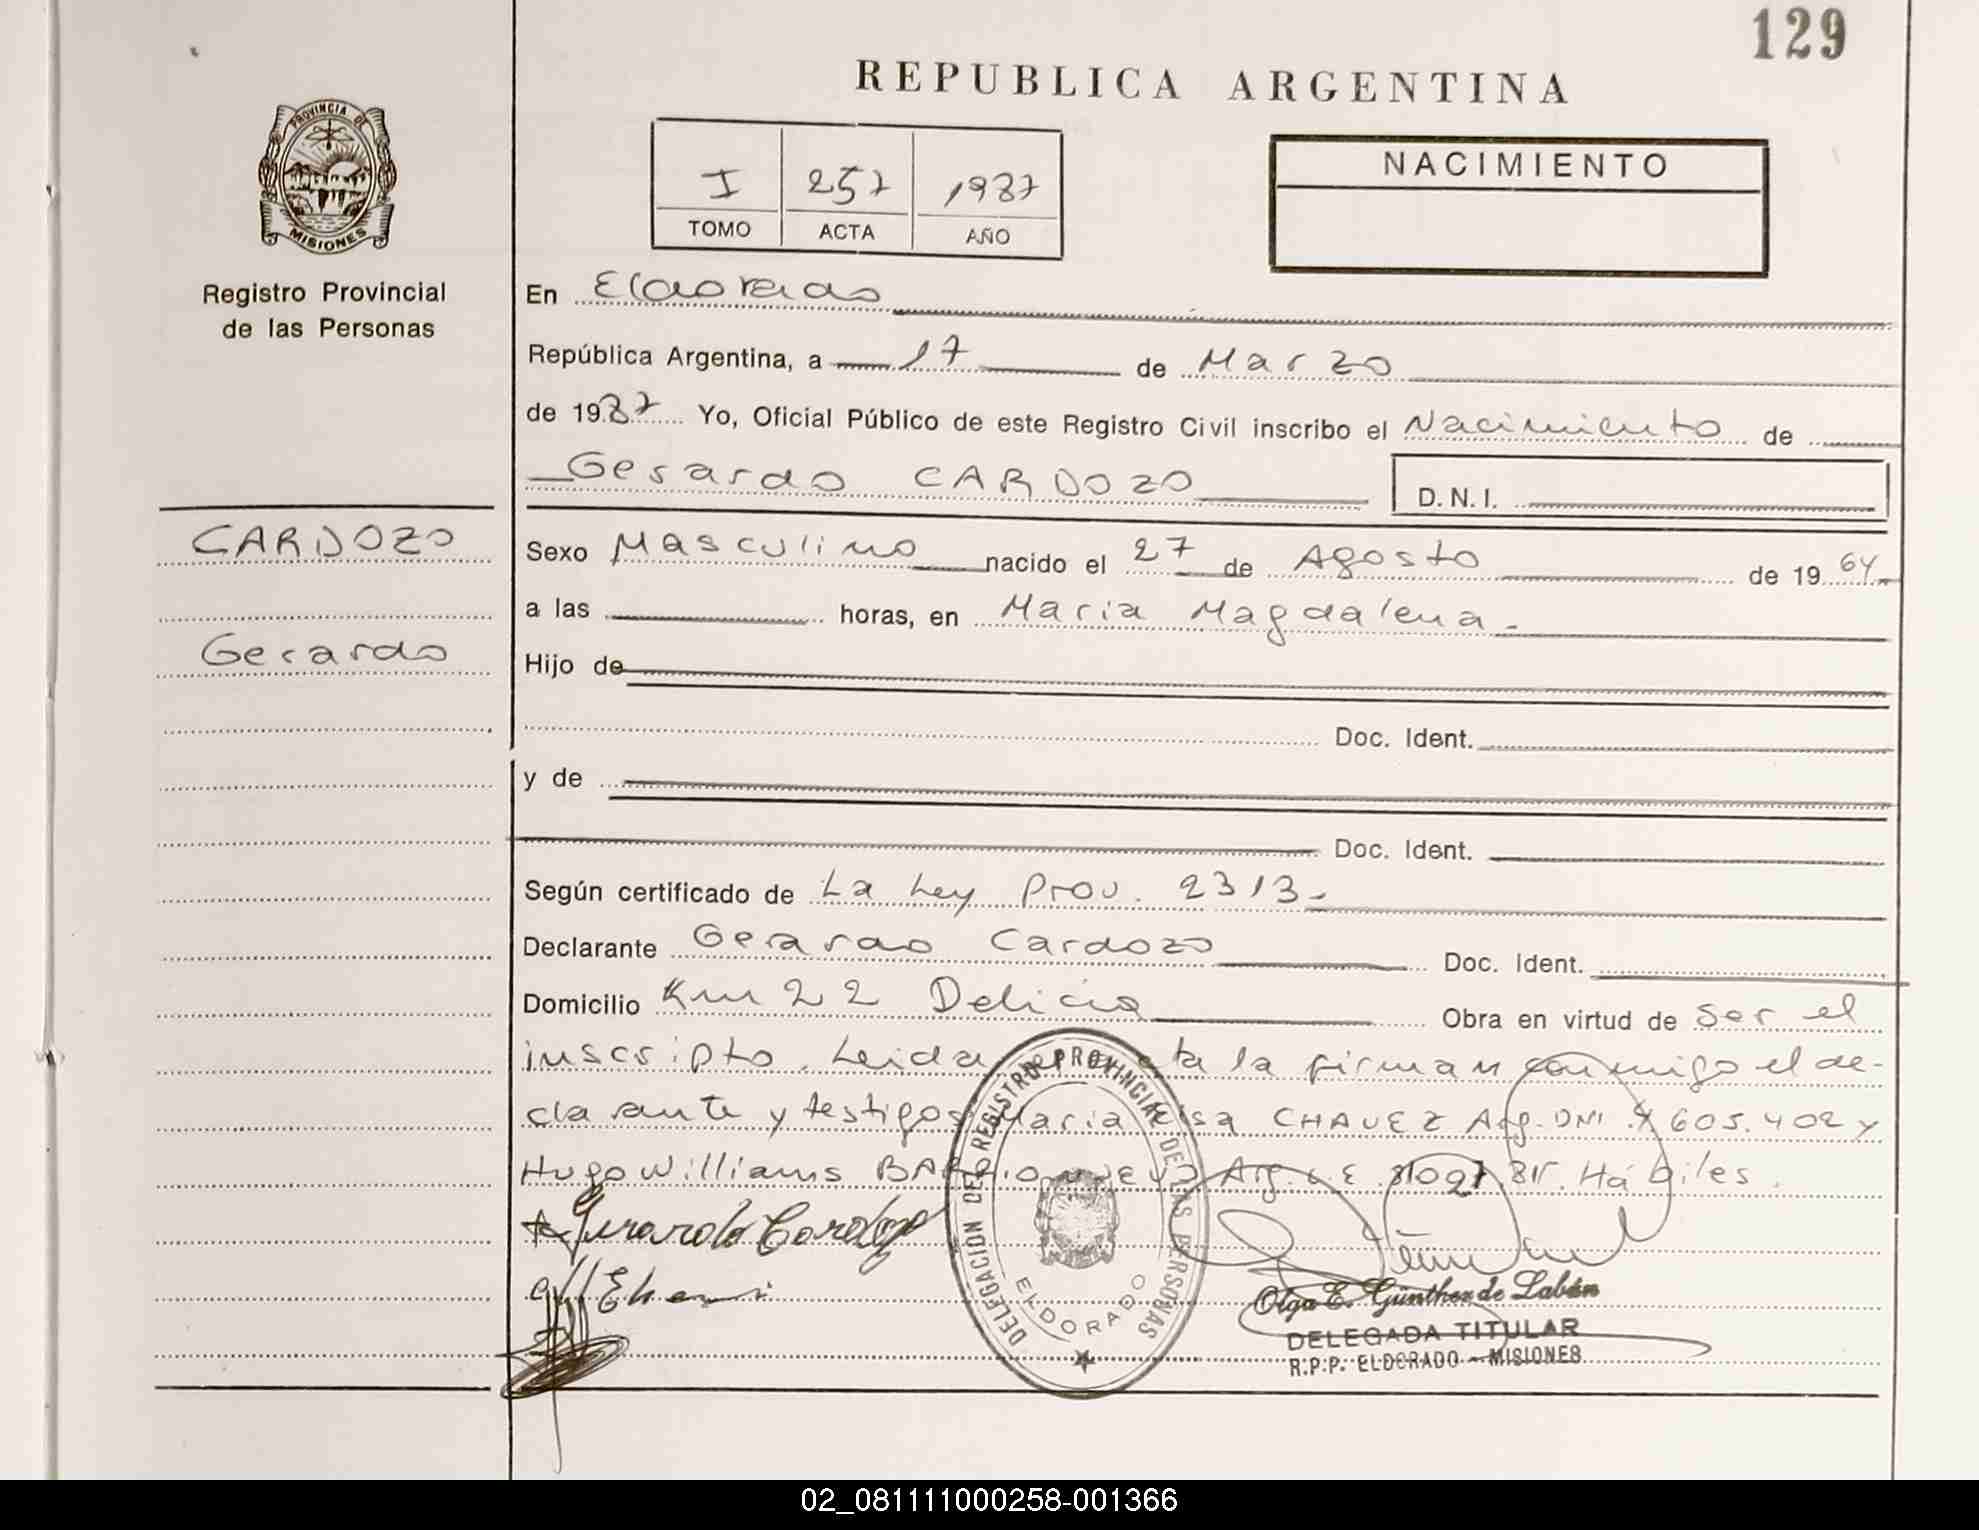 129
REPUBLICA ARGENTINA
PROVINCIA DE
MISIONES
Registro Provincial
de las Personas
I 257 1987
TOMO ACTA AÑO
NACIMIENTO
En Eldorado
República Argentina, a 17 de Marzo
de 1987 Yo, Oficial Público de este Registro Civil inscribo el Nacimiento de
Gerardo CARDOZO D.N.I.
CARDOZO
Gerardo
Sexo Masculino nacido el 27 de Agosto de 1964
a las horas, en Maria Magdalena.
Hijo de
Doc. Ident.
y de
Doc. Ident.
Según certificado de La Ley Prov. 2313
Declarante Gerardo Cardozo Doc. Ident.
Domicilio Km 22 Delicia Obra en virtud de ser el
inscripto. Leida el acta la firman conmigo el de-
clarante y testigos Maria CHAVEZ Arg. DNI 605.402 y
Hugo Williams Arg. Hábiles.
Gerardo Cardozo
DELEGACIÓN DEL REGISTRO PROVINCIAL DE LAS PERSONAS
ELDORADO
Olga E. Günther de Labán
DELEGADA TITULAR
R.P.P. ELDORADO - MISIONES
02_081111000258-001366